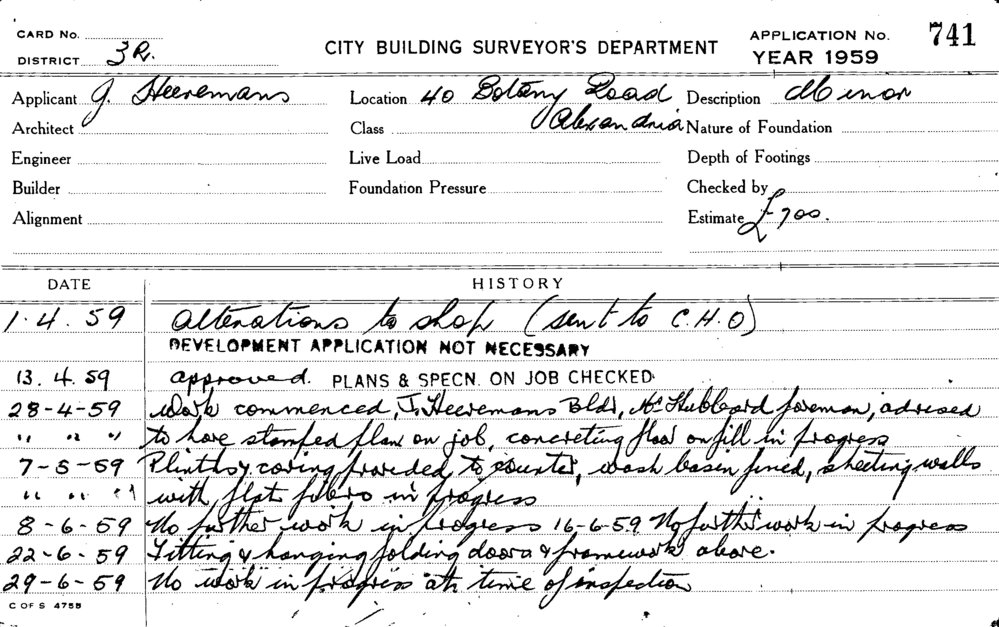 CARD No.
DISTRICT 3R.
CITY BUILDING SURVEYOR'S DEPARTMENT
APPLICATION No. 741
YEAR 1959
Applicant J. Heeremans
Location 40 Botany Road Alexandria
Description Minor
Architect
Class
Nature of Foundation
Engineer
Live Load
Depth of Footings
Builder
Foundation Pressure
Checked by
Alignment
Estimate £700.
DATE HISTORY
1.4.59 alterations to shop (sent to C.H.O)
DEVELOPMENT APPLICATION NOT NECESSARY
13.4.59 approved. PLANS & SPECN. ON JOB CHECKED
28-4-59 Work commenced, J. Heeremans Bldr, Mr Hubbard foreman, advised
" " " to have stamped plan on job, concreting floor on fill in progress
7-5-59 Plinths & coving provided to counter, wash basin fixed, sheeting walls
" " " with flat fibro in progress
8-6-59 No further work in progress 16-6-59 No further work in progress
22-6-59 Fitting & hanging folding doors & framework above.
29-6-59 No work in progress at time of inspection
C OF S 4758